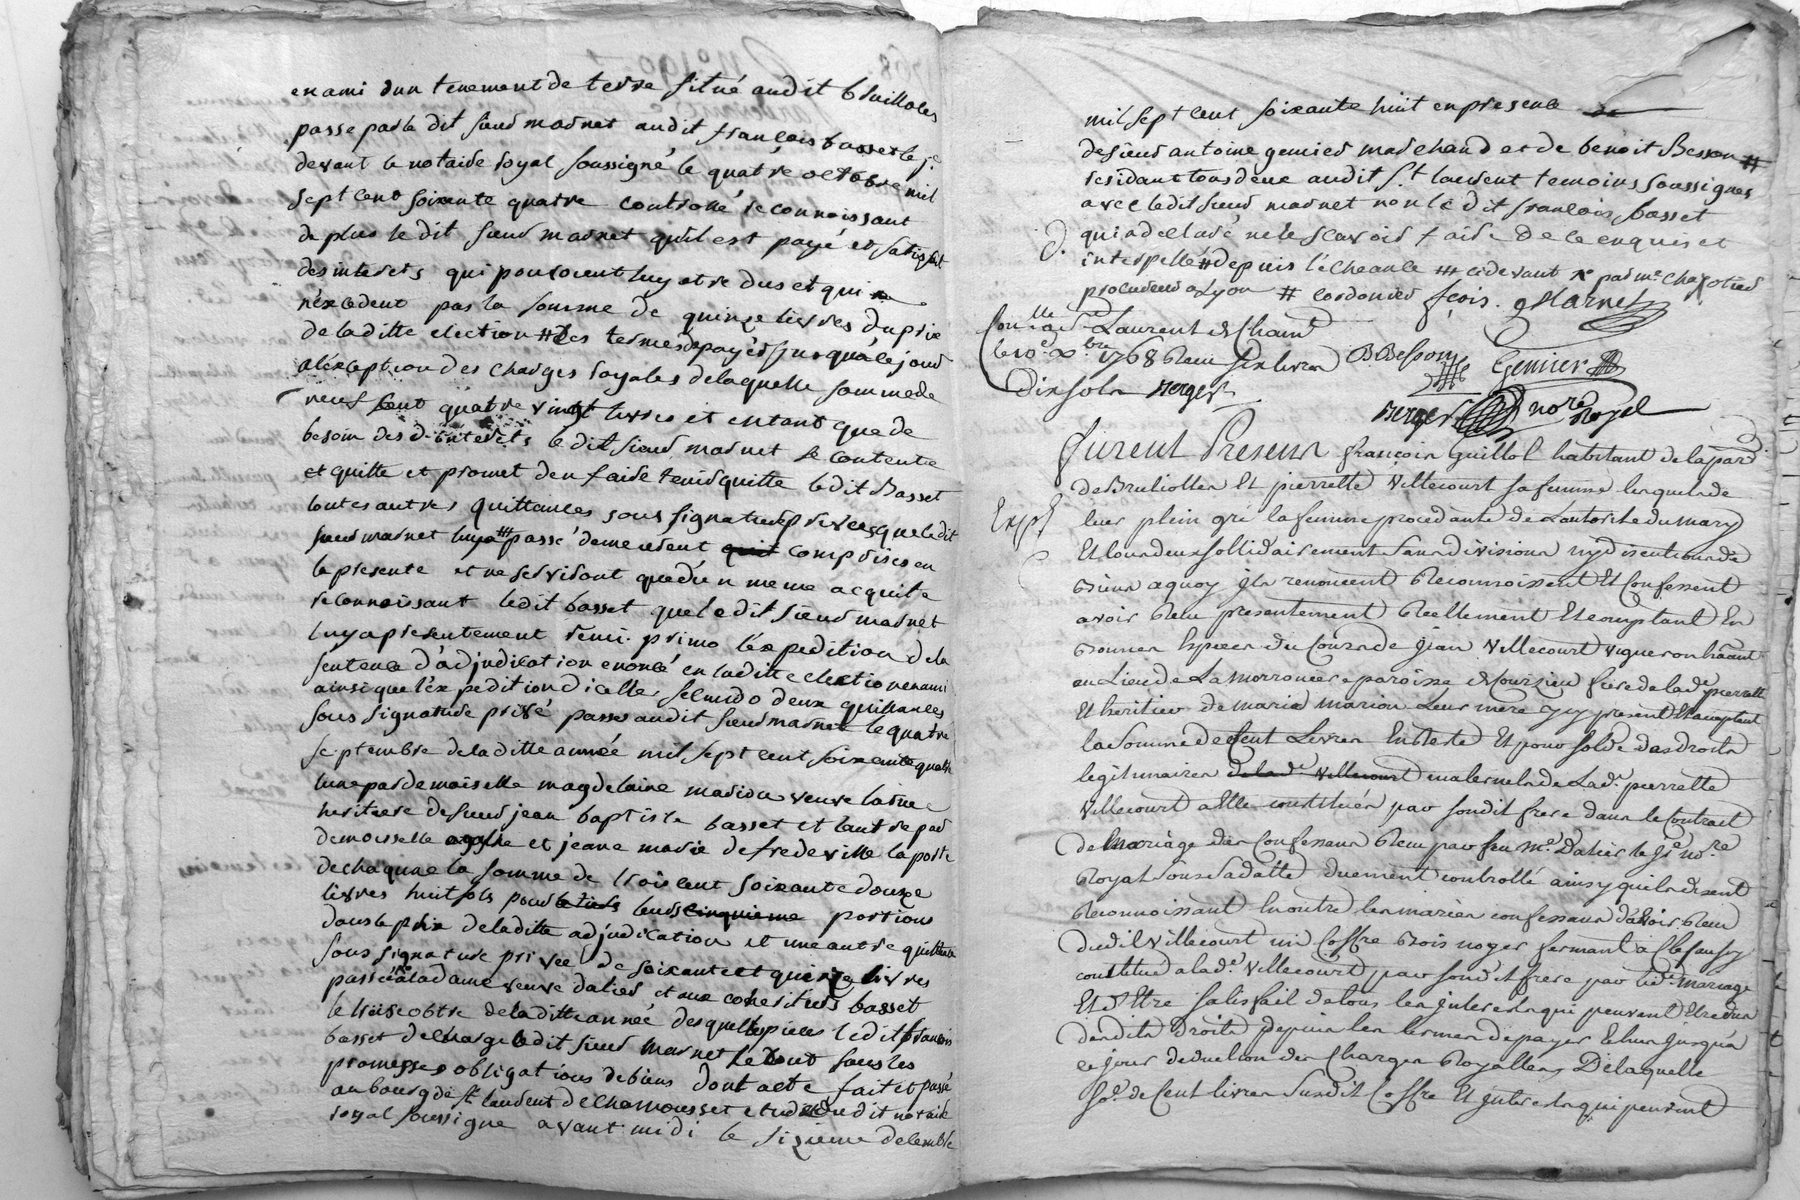 en ami d'un tenement de terre situé audit Brullioles
passé par le dit sieur marnet audit françois basset le je
devant le notaire royal soussigné le quatre octobre mil
sept cent soixante quatre controllé reconnoissant
de plus le dit sieur marnet qu'il est payé et satisfait
des interets qui pouroient luy etre dus et qui
n'excedent pas la somme de quinze livres du prix
de laditte election # des termes payés jusqu'à ce jour
a l'exception des charges royales de laquelle somme de
neuf cent quatre vingt livres et entant que de
besoin des d. interets le dit sieur marnet se contente
et quitte et promet d'en faire tenir quitte ledit Basset
toutes autres quittances sous signatures privées que ledit
sieur marnet luy a passé demeurent comprises en
la presente et ne serviront que d'un meme acquit
reconnoissant ledit basset que le dit sieur marnet
luy a presentement remi primo l'expedition de la
sentence d'adjudication enoncé en laditte election en ami
ainsi que l'expedition d'icelle secundo deux quittances
sous signature privé passée audit sieur marnet le quatre
septembre de laditte année mil sept cent soixante quatre
l'une par demoiselle magdelaine marion veuve
heritiere de sieur jean baptiste basset et l'autre par
demoiselle et jeane marie de fredeville la porte
de chaqune la somme de trois cent soixante douze
livres huit sols pour leurs cinquieme portions
dans le prix de laditte adjudication et une autre quittance
sous signature privée de soixante et quinze livres
passée a la dame veuve dalier et aux coheritiers basset
le treise obtre de laditte année desquelles pieces ledit françois
basset decharge ledit sieur marnet le tout sous les
promesses obligations de biens dont acte fait et passé
au bourg de st laurent de chamousset etude dudit notaire
royal soussigné avant midi le sizieme decembre
mil sept cent soixante huit en presence de
de sieur antoine gemier marchand et de benoit Besson #
residant tous deux audit st. laurent temoins soussignés
avec ledit sieur marnet non le dit françois basset
qui a declaré ne le sçavoir faire de ce enquis et
interpellé # depuis l'echeance # cidevant x par me chazotier
procureur a Lyon # cordonier fçois. Marnet
Conllé a St Laurent de Chamt
le 10e xbre 1768 Reçu six livres B Besson Gemier
Dix sols Berger
Berger nore Royal
Furent Presens françois Guillot habitant de la par.
de Brullioles Et pierrette Villecourt sa femme lesquels de
Exp.
leur plein gré la femme procedante de L'autorité du mary
Et tous deux sollidairement sans division ny discution de
Biens a quoy ils renoncent Reconnoissent Et Confessent
avoir Reçu presentement Reellement Et comptant En
Bonnes Especes du Cours de Jean Villecourt vigneron hãnt
au Lieu de La morronciere paroisse de Courzieu frere de lade pierrette
Et heritier de marie marion Leur mere Icy present Et acceptant
la Somme de Cent Livres En reste Et pour solde des droits
legitimaires de lade Villecourt maternels de Lade pierrette
Villecourt a Elle constitués par son dit frere dans le Contrat
de Mariage des Confessans Reçu par feu me Dalier le je nore
Royal sous sa datte duement controllé ainsy qu'ils disent
Reconnoissant En outre les mariés confessans d'avoir Reçu
dudit Villecourt un Coffre Bois noyer fermant a Clef aussy
constitué a lade Villecourt par son dit frere par led. mariage
Et d'Etre satisfait de tous les Interets qui peuvent Etre dus
desdits droits depuis les termes de payer Echus jusqu'a
ce jour deduction des Charges Royalles De laquelle
So. de Cent livres susdit Coffre Et Interets qui peuvent